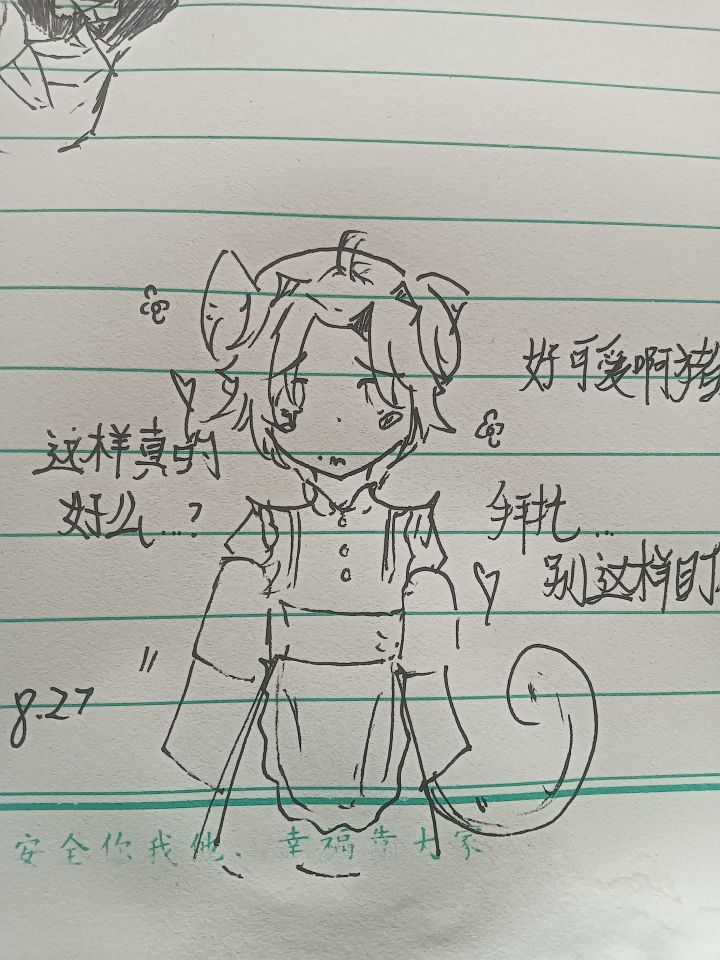 好可爱啊猪
这样真的
好么...?
拜托...
别这样盯
8.27
安全你我他、幸福靠大家